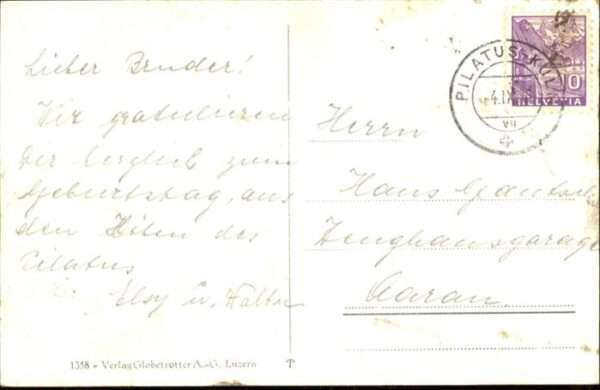 Lieber Bruder!
Wir gratulieren
Dir herzlich zum
Geburtstag, aus
den Höhen des
Pilatus
Elsy u. Walter
PILATUS-KUL
4.IX
VII
10
HELVETIA
Herrn
Hans Gautschi
Zeughausgarage
Aarau.
1358 - Verlag Globetrotter A.-G., Luzern